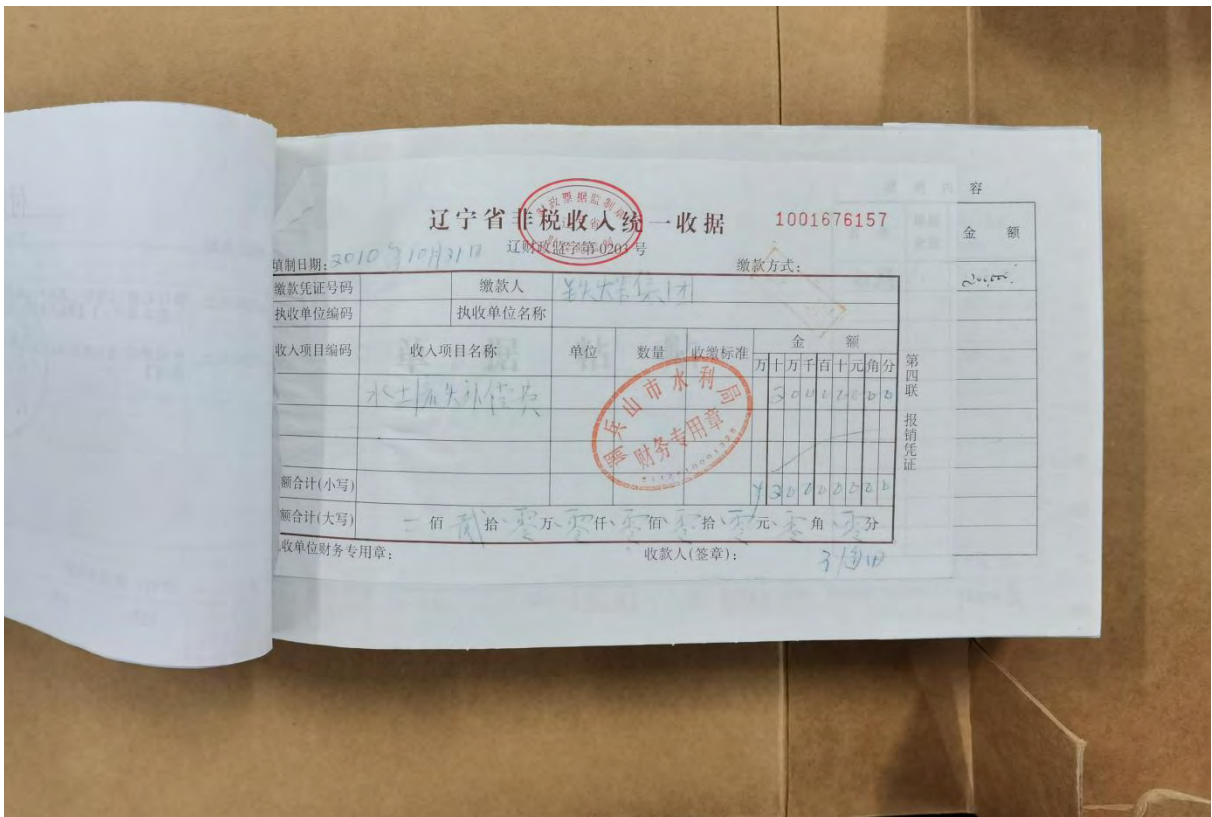 辽宁省非税收入统一收据
1001676157
辽财政监字第0203号
填制日期：2010年10月31日
缴款方式：
缴款凭证号码 缴款人 铁煤集团
执收单位编码 执收单位名称
收入项目编码 收入项目名称 单位 数量 收缴标准 金 额
万 十 万 千 百 十 元 角 分
水土流失补偿费 2 0 0 0 0 0 0 0
额合计(小写) ¥ 2 0 0 0 0 0 0 0
额合计(大写) 佰 贰 拾 零 万 零 仟 零 佰 零 拾 零 元 零 角 零 分
收单位财务专用章：
收款人(签章)：
第四联 报销凭证
调兵山市水利局
财务专用章
内 容
金 额